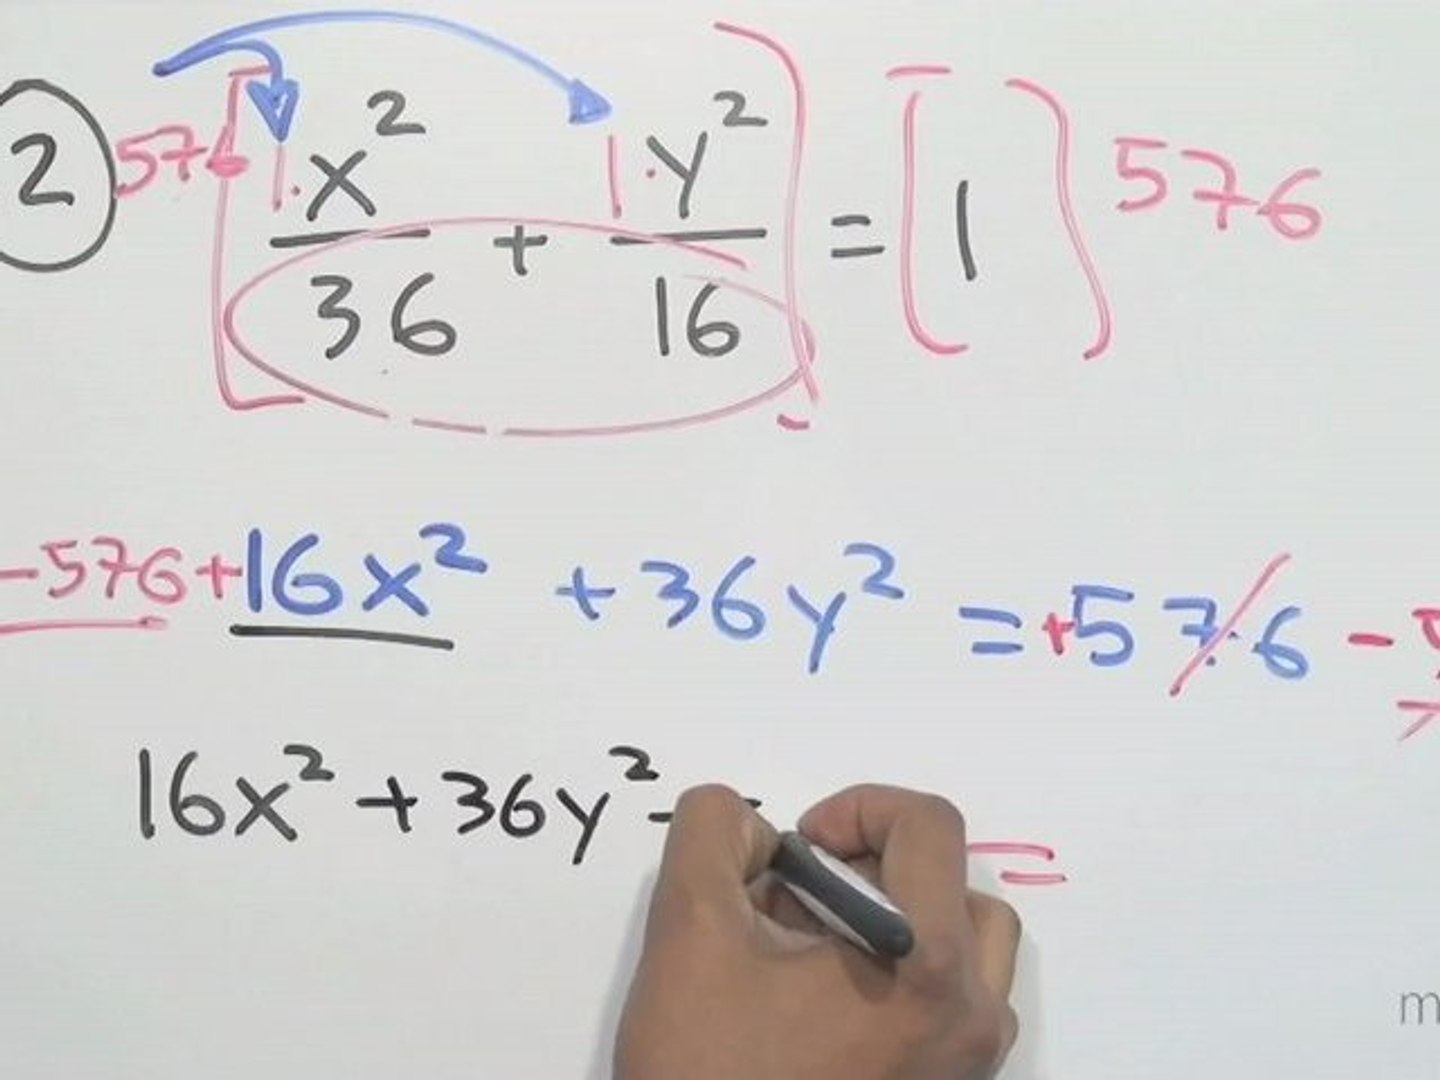 2 576 [1·x²/36 + 1·y²/16] = [1] 576
-576 + 16x² + 36y² = +576 -
16x² + 36y² -
=
m